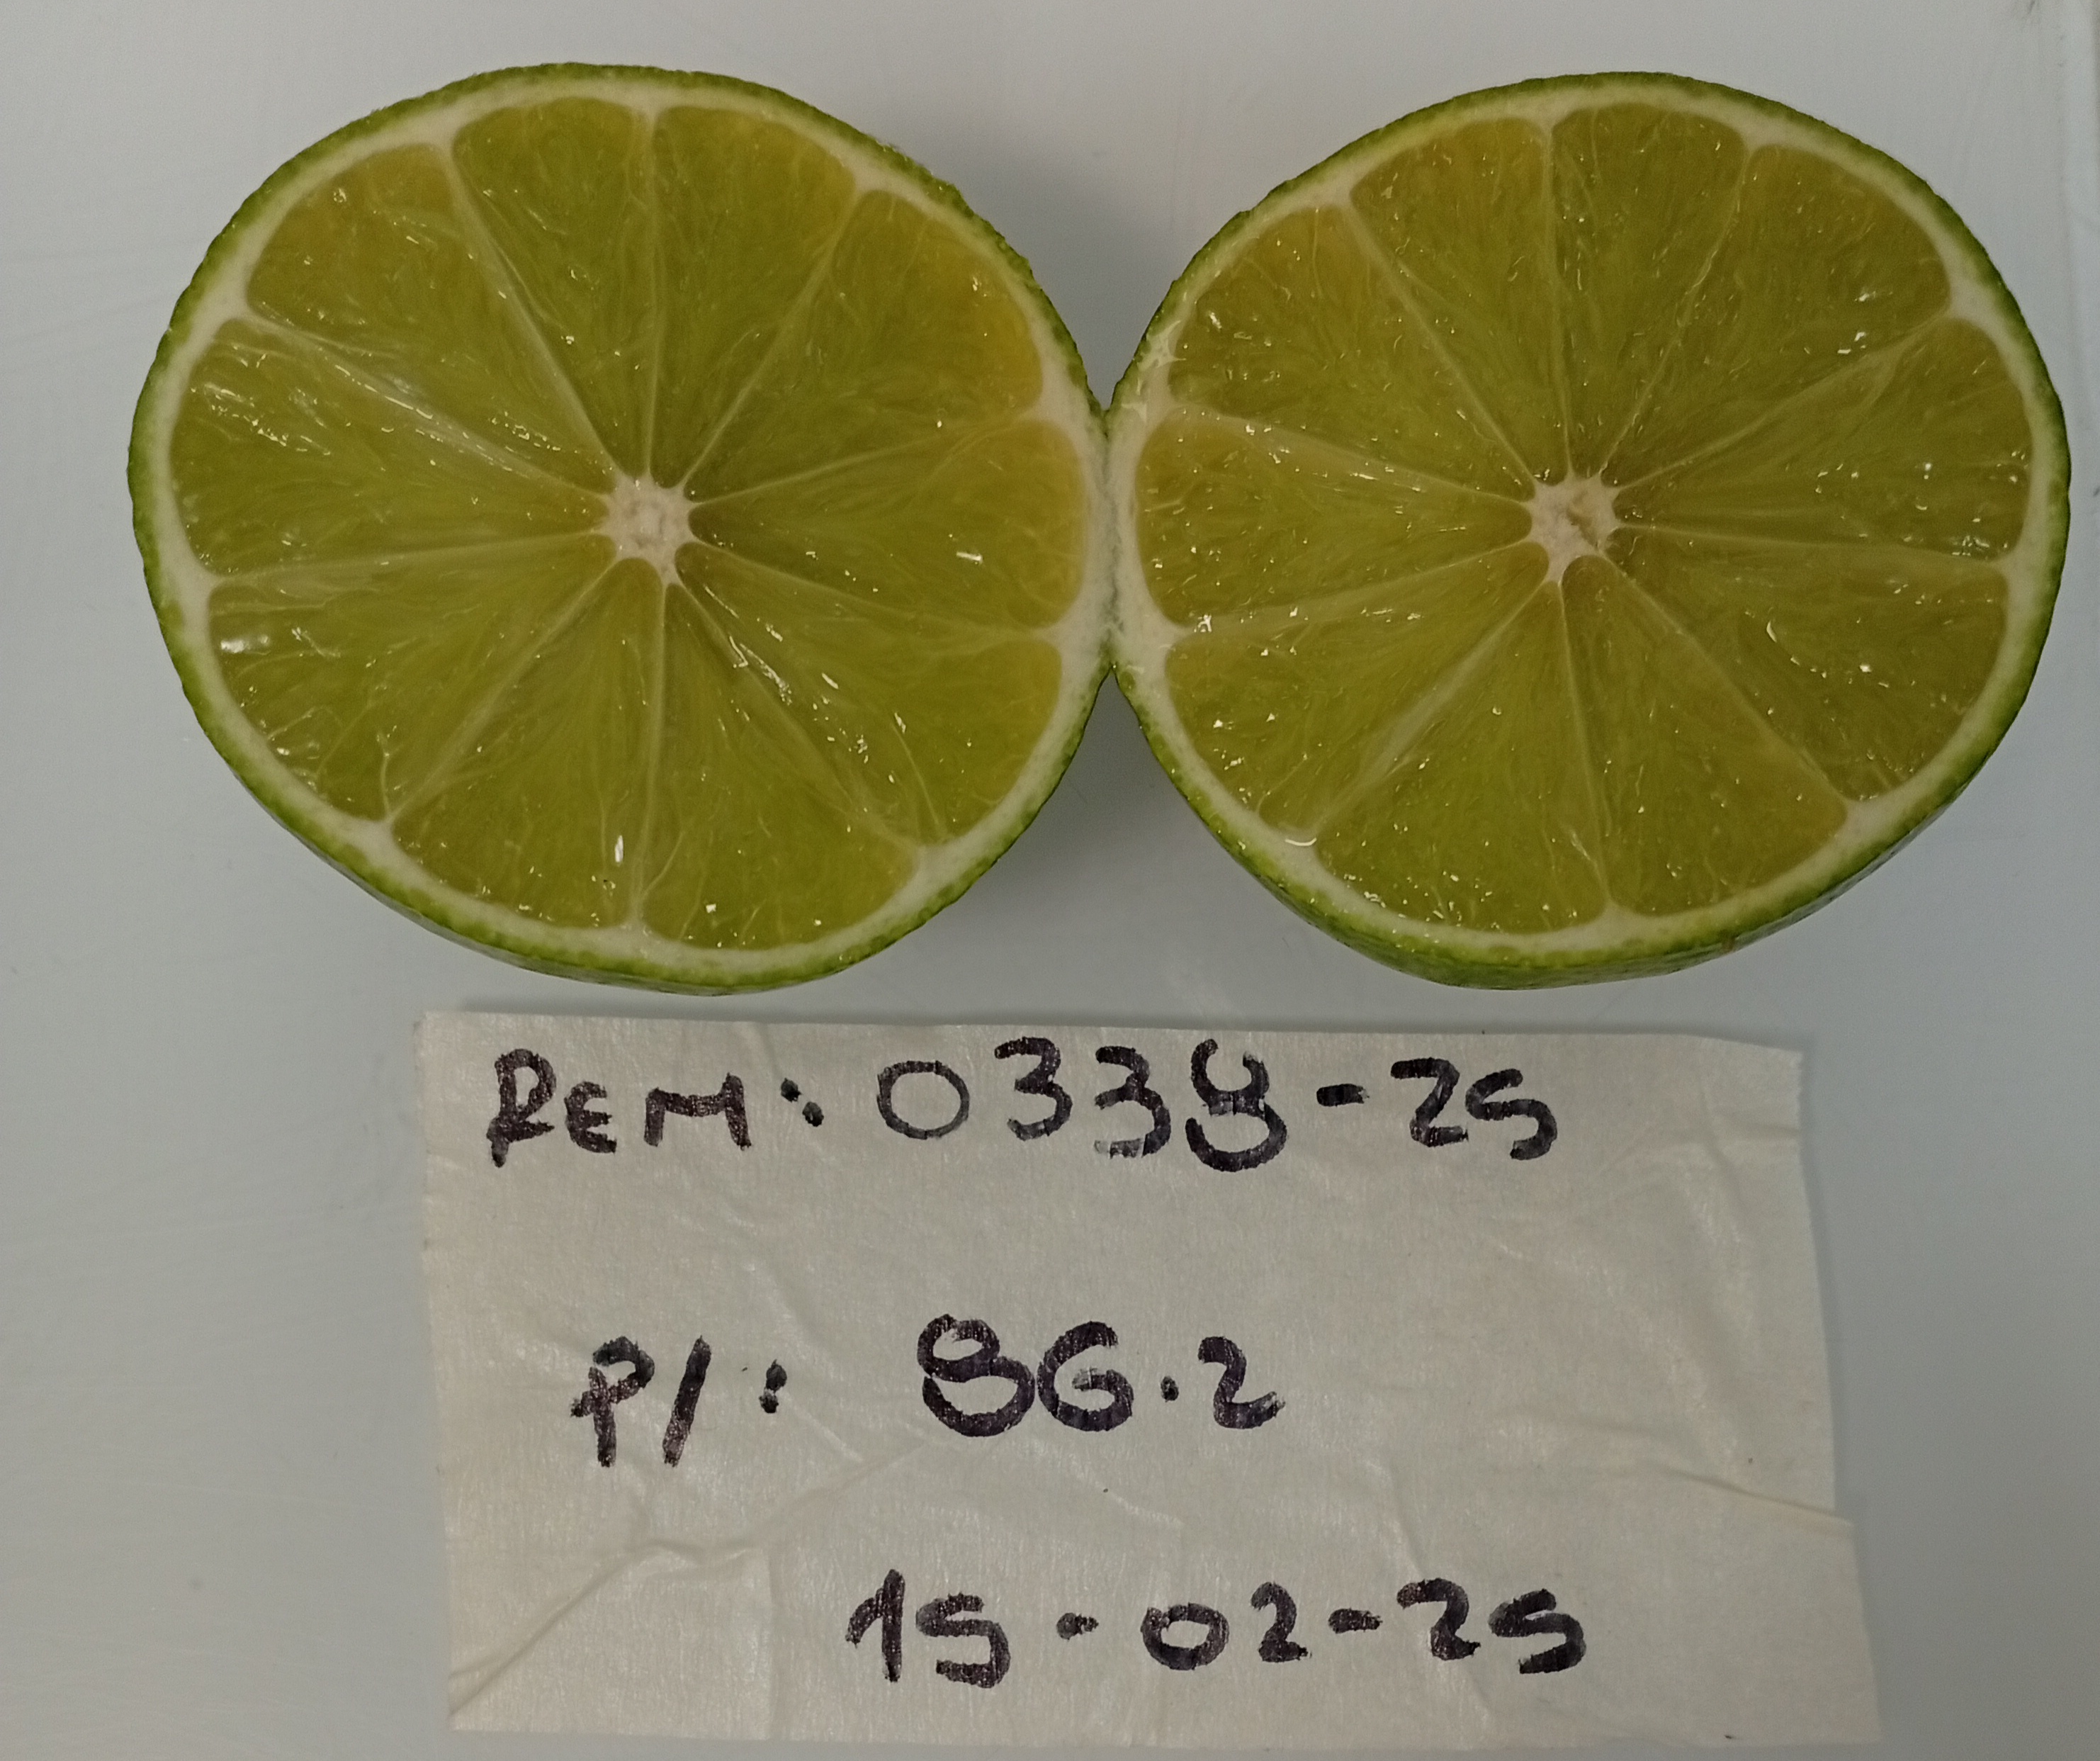 REM: 0338-25
P/: 86.2
15-02-25